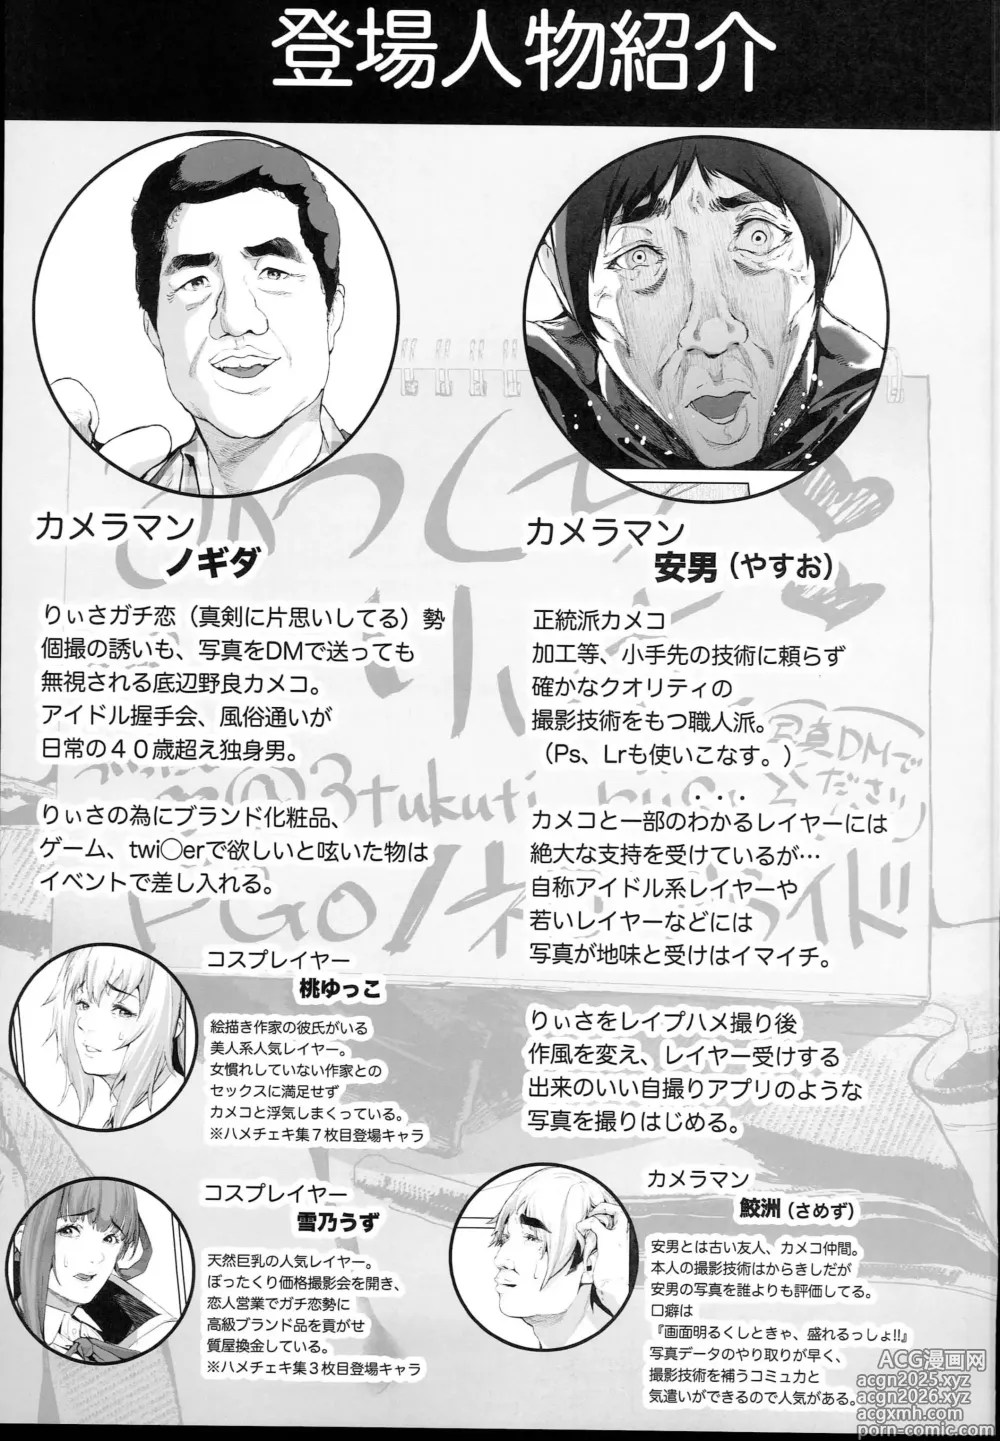 登場人物紹介
カメラマン
ノギダ
りぃさガチ恋（真剣に片思いしてる）勢
個撮の誘いも、写真をDMで送っても
無視される底辺野良カメコ。
アイドル握手会、風俗通いが
日常の４０歳超え独身男。
りぃさの為にブランド化粧品、
ゲーム、twi〇erで欲しいと呟いた物は
イベントで差し入れる。
カメラマン
安男（やすお）
正統派カメコ
加工等、小手先の技術に頼らず
確かなクオリティの
撮影技術をもつ職人派。
（Ps、Lrも使いこなす。）
カメコと一部のわかるレイヤーには
絶大な支持を受けているが…
自称アイドル系レイヤーや
若いレイヤーなどには
写真が地味と受けはイマイチ。
りぃさをレイプハメ撮り後
作風を変え、レイヤー受けする
出来のいい自撮りアプリのような
写真を撮りはじめる。
コスプレイヤー
桃ゆっこ
絵描き作家の彼氏がいる
美人系人気レイヤー。
女慣れしていない作家との
セックスに満足せず
カメコと浮気しまくっている。
※ハメチェキ集７枚目登場キャラ
コスプレイヤー
雪乃うず
天然巨乳の人気レイヤー。
ぼったくり価格撮影会を開き、
恋人営業でガチ恋勢に
高級ブランド品を貢がせ
質屋換金している。
※ハメチェキ集３枚目登場キャラ
カメラマン
鮫洲（さめず）
安男とは古い友人、カメコ仲間。
本人の撮影技術はからきしだが
安男の写真を誰よりも評価してる。
口癖は
『画面明るくしときゃ、盛れるっしょ!!』
写真データのやり取りが早く、
撮影技術を補うコミュ力と
気遣いができるので人気がある。
写真DMで
ください
@3tukuti
ACG漫画网
acgn2025.xyz
acgn2026.xyz
acgxmh.com
porn-comic.com